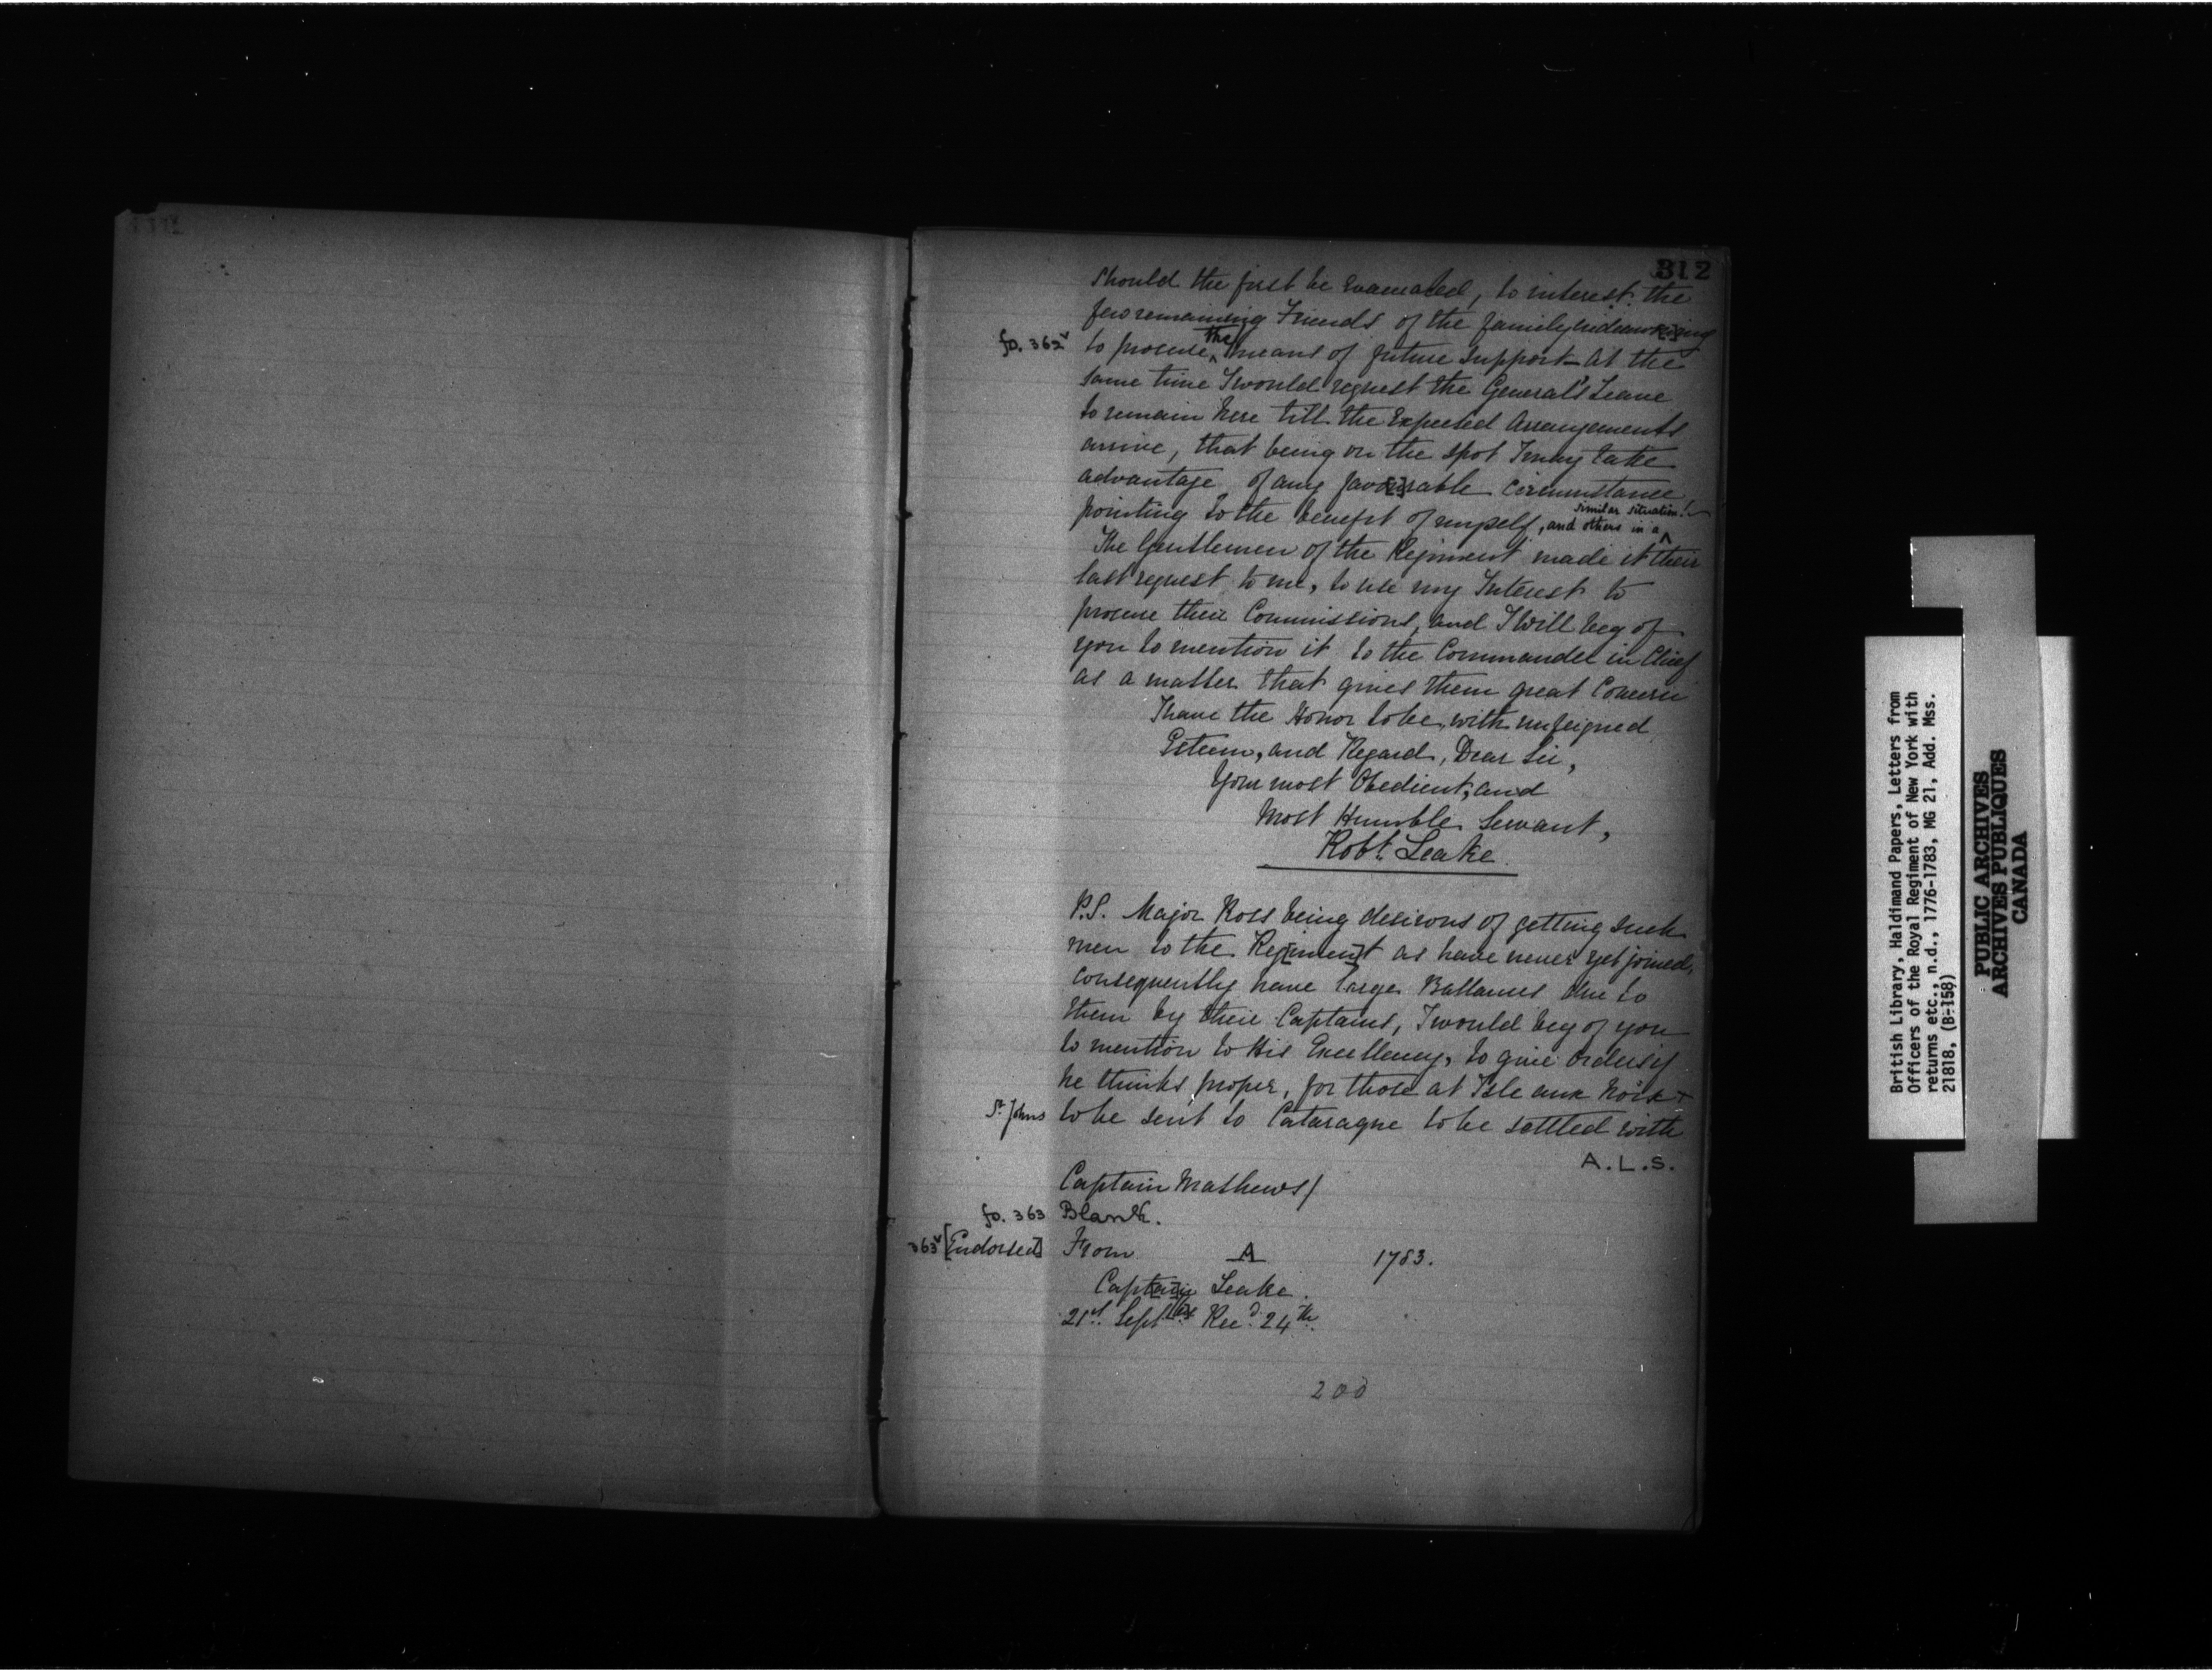 312
Should the first be evacuated, to interest the
few remaining Friends of the family endeav[o]ring
fo. 362v to procure the means of future support - at the
same time I would request the General's Leave
to remain here till the Expected Arrangements
arrive, that being on the spot I may take
advantage of any favo[u]rable Circumstance,
pointing to the benefit of myself, and others in a similar situation!
The Gentlemen of the Regiment made it their
last request to me, to use my Interest to
procure their Commissions, and I will beg of
you to mention it to the Commander in Chief
as a matter that gives them great Concern
I have the Honor to be, with unfeigned
Esteem, and Regard, Dear Sir,
Your most Obedient, and
Most Humble Servant,
Robt. Leake.
P.S. Major Ross being desirous of getting such
men to the Reg[imen]t as have never yet joined,
consequently have large Ballances due to
them by their Captains, I would beg of you
to mention to His Excellency, to give Orders if
he thinks proper, for those at Isle aux Noix +
St. Johns to be sent to Cataraque to be settled with
A.L.S.
Captain Mathews/
fo. 363 Blank.
363v [Endorsed] From A 1783.
Capt[ai]n Leake.
21st. Sept[be]r. Recd. 24th.
200
British Library, Haldimand Papers, Letters from
Officers of the Royal Regiment of New York with
returns etc., n.d., 1776-1783, MG 21, Add. Mss.
21818, (B-158)
PUBLIC ARCHIVES
ARCHIVES PUBLIQUES
CANADA